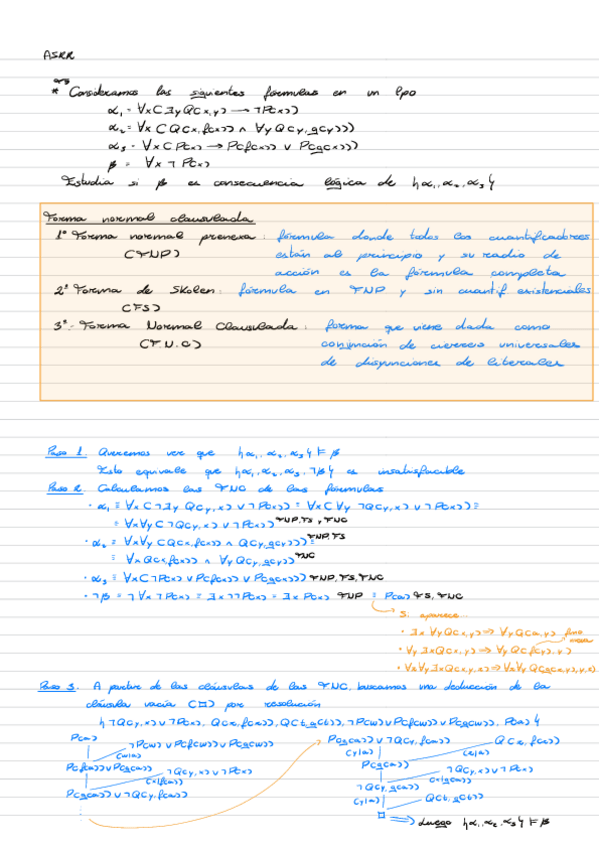 ASRR
* Consideramos las siguientes fórmulas en un lpo
α₁ = ∀x(∃y Q(x,y) → ¬P(x))
α₂ = ∀x(Q(x,f(x)) ∧ ∀y Q(y,g(y)))
α₃ = ∀x(P(x) → P(f(x)) ∨ P(g(x)))
β = ∀x ¬P(x)
Estudia si β es consecuencia lógica de {α₁, α₂, α₃}
Forma normal clausulada
1º Forma normal prenexa: fórmula donde todos los cuantificadores
(FNP) están al principio y su radio de
acción es la fórmula completa
2º Forma de Skolen: fórmula en FNP y sin cuantif existenciales
(FS)
3º. Forma Normal Clausulada: forma que viene dada como
(F.N.C) conjunción de cierres universales
de disyunciones de literales
Paso 1. Queremos ver que {α₁, α₂, α₃} ⊨ β
Esto equivale que {α₁, α₂, α₃, ¬β} es insatisfacible
Paso 2. Calculamos las FNC de las fórmulas
· α₁ ≡ ∀x(¬∃y Q(y,x) ∨ ¬P(x)) ≡ ∀x(∀y ¬Q(y,x) ∨ ¬P(x)) ≡
≡ ∀x∀y(¬Q(y,x) ∨ ¬P(x)) FNP, FS y FNC
· α₂ ≡ ∀x∀y(Q(x,f(x)) ∧ Q(y,g(y))) FNP, FS ≡
≡ ∀x Q(x,f(x)) ∧ ∀y Q(y,g(y)) FNC
· α₃ ≡ ∀x(¬P(x) ∨ P(f(x)) ∨ P(g(x))) FNP, FS, FNC
· ¬β = ¬∀x ¬P(x) ≡ ∃x ¬¬P(x) ≡ ∃x P(x) FNP ≡ P(a) FS, FNC
Si aparece...
· ∃x ∀y Q(x,y) ⇒ ∀y Q(a,y)
· ∀y ∃x Q(x,y) ⇒ ∀y Q(f(y),y)
Paso 3. A partir de las cláusulas de las FNC, buscamos una deducción de la
cláusula vacía (□) por resolución
{¬Q(y,x) ∨ ¬P(x), Q(z,f(z)), Q(t,g(t)), ¬P(w) ∨ P(f(w)) ∨ P(g(w)), P(a)}
P(a) ¬P(w) ∨ P(f(w)) ∨ P(g(w)) P(g(a)) ∨ ¬Q(y,f(a)) Q(z,f(z))
(w|a) (y|a) (z|a)
P(f(a)) ∨ P(g(a)) ¬Q(y,x) ∨ ¬P(x) P(g(a)) ¬Q(y,x) ∨ ¬P(x)
(x|f(a)) (x|g(a))
P(g(a)) ∨ ¬Q(y,f(a)) ¬Q(y,g(a)) Q(t,g(t))
(y|a) (t|a)
□ ⟹ Luego {α₁, α₂, α₃} ⊨ β